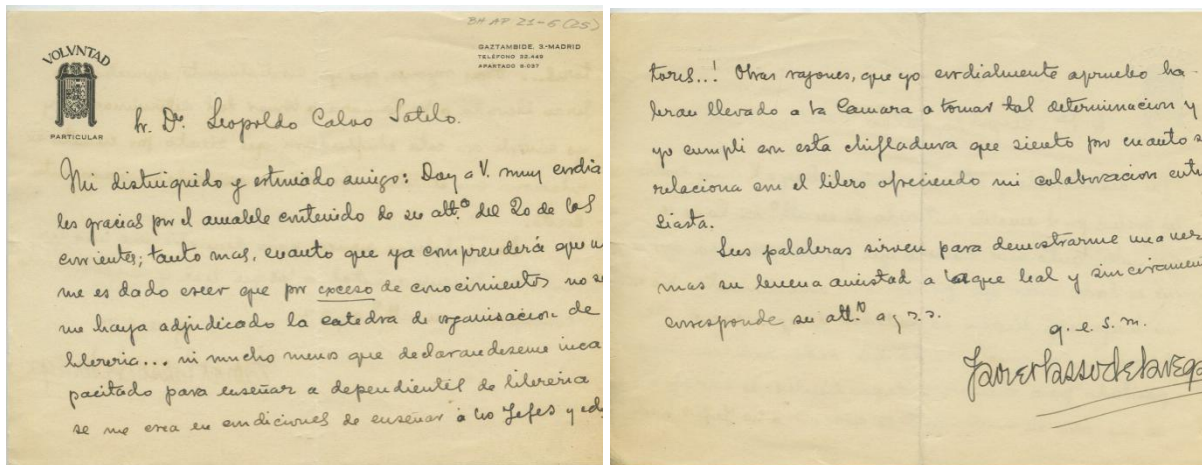 BH AP 21-6 (25)
VOLVNTAD
PARTICULAR
GAZTAMBIDE, 3.-MADRID
TELÉFONO 32.449
APARTADO 8.037
Sr. Dn. Leopoldo Calvo Sotelo.
Mi distinguido y estimado amigo: Doy a V. muy cordia
les gracias por el amable contenido de su att.ª del 20 de los
corrientes; tanto mas, cuanto que ya comprenderá que no
me es dado creer que por exceso de conocimientos no se
me haya adjudicado la catedra de organisacion de
libreria... ni mucho menos que declarandoseme inca
pacitado para enseñar a dependientes de libreria
se me crea en condiciones de enseñar a los Jefes y edi
tores..! Otras razones, que yo cordialmente apruebo ha
bran llevado a la Camara a tomar tal determinacion y
yo cumpli con esta chifladura que siento por cuanto s
relaciona con el libro ofreciendo mi colaboracion entu
siasta.
Sus palabras sirven para demostrarme una vez
mas su buena amistad a la que leal y sinceramen
corresponde su att.º a y s.s.
q. e. s. m.
Javier Lasso de la Vega